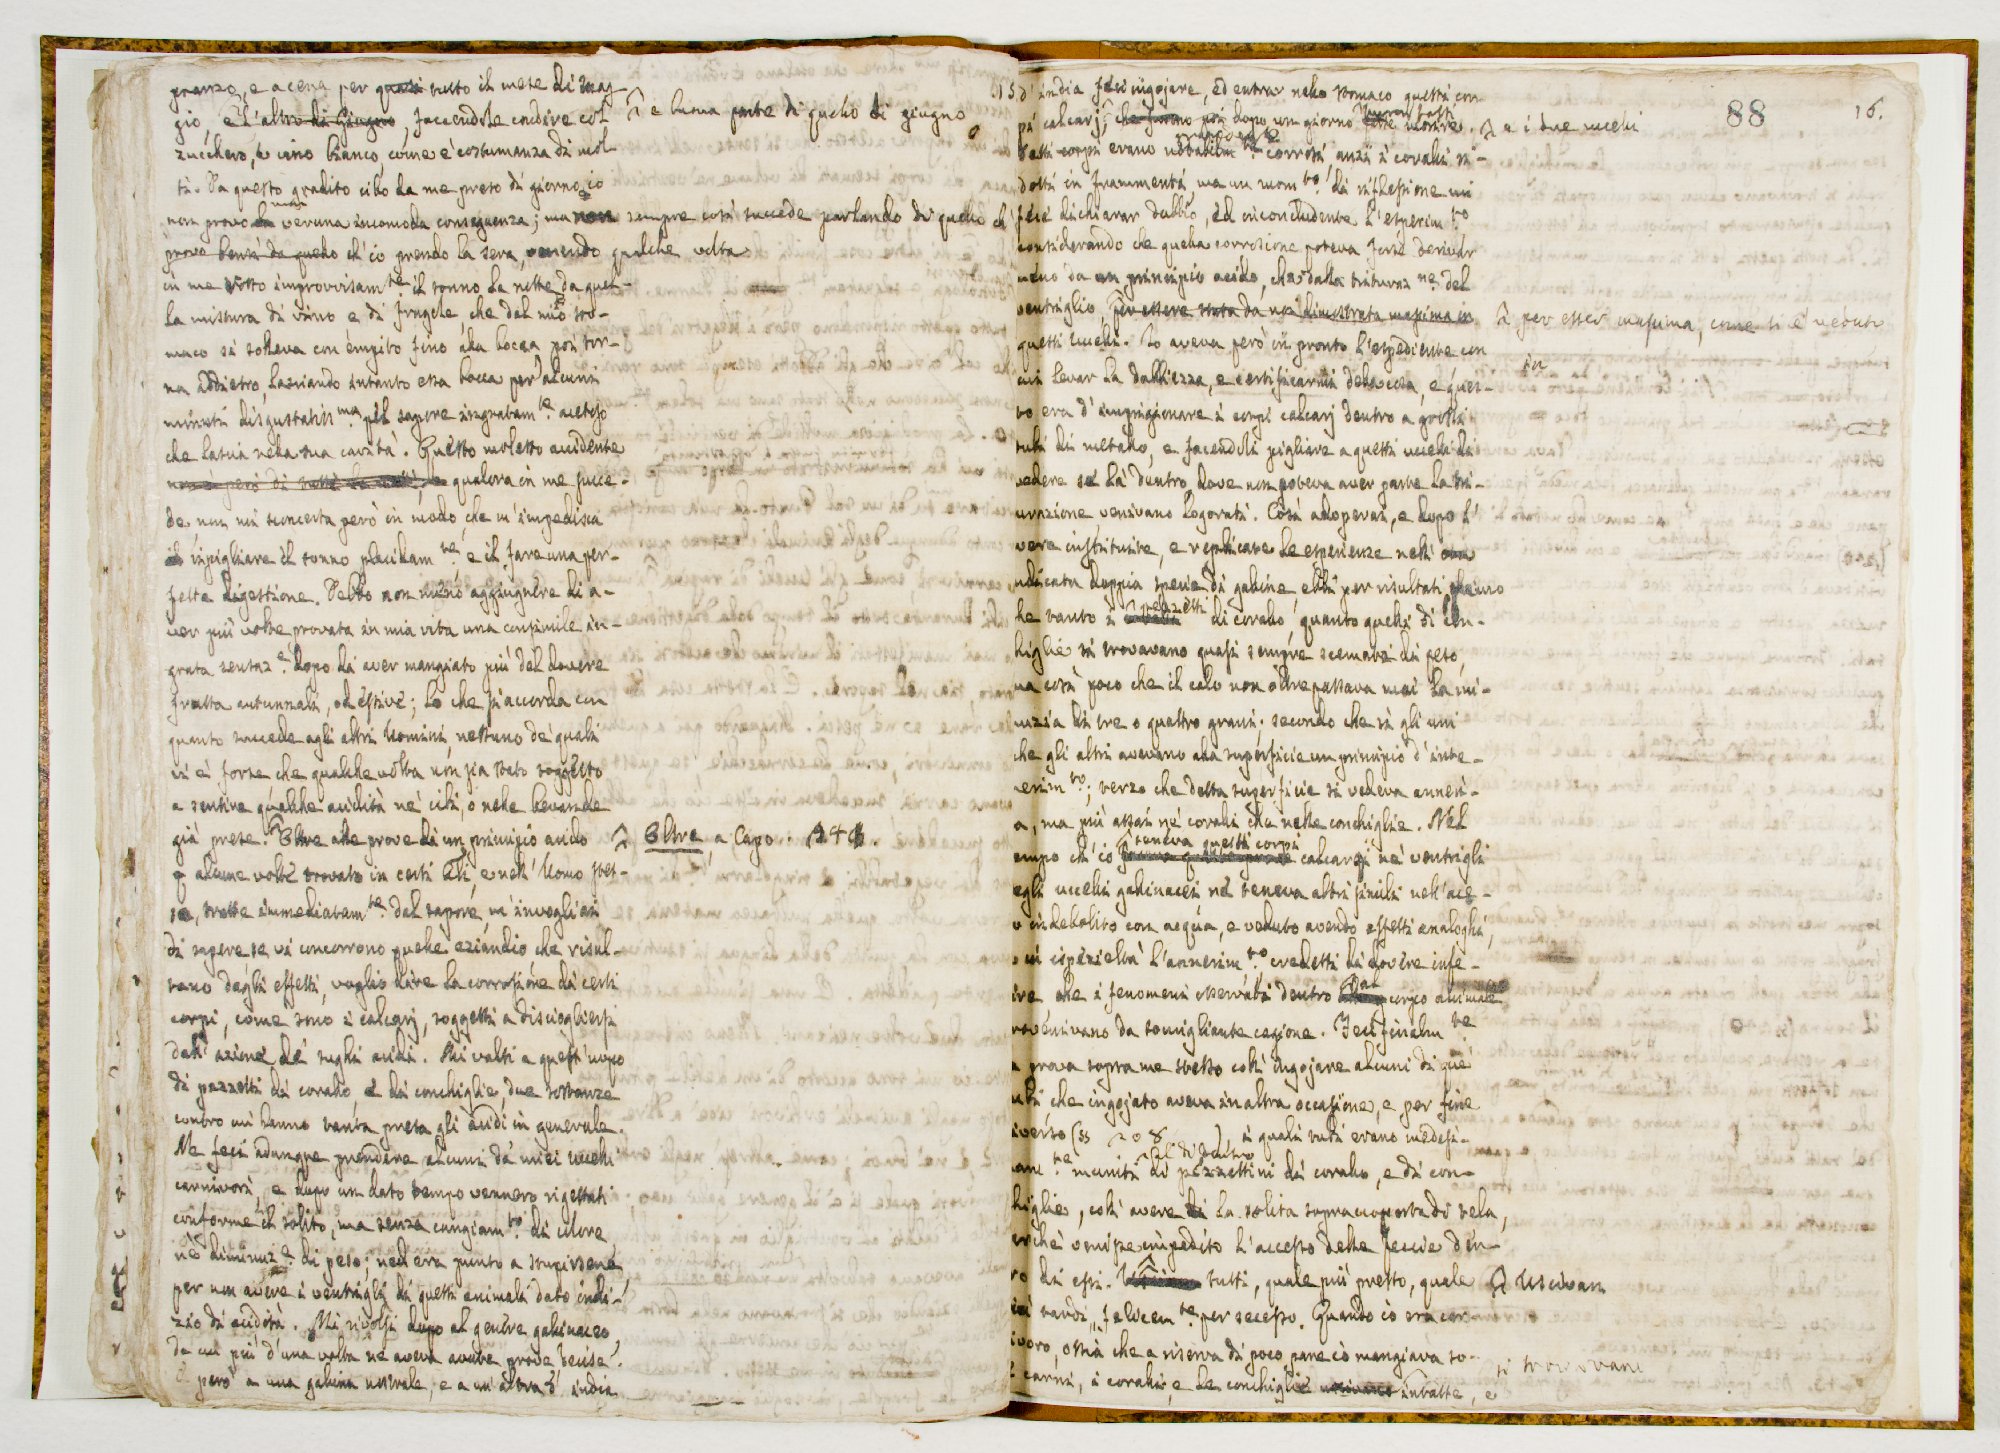 pranzo, e a cena per quasi tutto il mese di Mag-
gio, e l'altro di Giugno, facendole condire col
e buona parte di quello di giugno
zucchero, e vino bianco, come è costumanza di mol-
ti. Da questo gradito cibo da me preso di giorno io
non provo mai veruna incomoda conseguenza; ma non sempre così succede parlando di quello ch'
provo bensì da quello ch'io prendo la sera, venendo qualche volta
in me rotto improvvisam.te il sonno la notte da quel-
la mistura di vino e di fragole, che dal mio sto-
maco si solleva con émpito fino alla bocca poi tor-
na addietro, lasciando intanto essa bocca per alcuni
minuti disgustatiss.ma pel sapore ingratam.te acetoso
che lascia nella sua cavità. Questo molesto accidente
non è però di tutte le notti, e qualora in me succe-
de non mi sconcerta però in modo, che m'impedisca
il ripigliare il sonno placidam.te e il fare una per-
fetta digestione. Debbo non meno aggiugnere di a-
ver più volte provata in mia vita una consimile in-
grata sensaz.e dopo di aver mangiato più del dovere
frutta autunnali, od estive; lo che s'accorda con
quanto succede agli altri Uomini, nessuno de' quali
vi è forse che qualche volta non sia stato soggetto
a sentire qualche acidità ne' cibi, o nelle bevande
già prese. Oltre alle prove di un principio acido
Oltre, a Capo. 246.
alcune volte trovato in certi Enti, e nell'Uomo stes-
so, tratte immediatam.te dal sapore, m'invogliai
di sapere, se vi concorrono quelle eziandio che risul-
tano dagli effetti, voglio dire la corrosione di certi
corpi, come sono i calcarj, soggetti a disciogliersi
dall'azione de' sughi acidi. Mi valsi a quest'uopo
di pezzetti di corallo, e di conchiglie, due sostanze
contro cui hanno tanta presa gli acidi in generale.
Ne feci adunque prendere alcuni da' miei uccelli
carnivori, e dopo un dato tempo vennero rigettati
conforme il solito, ma senza cangiam.to di colore
nè diminuz.e di peso; ned era punto a stupirsene
per non avere i ventrigli di questi animali dato indi-
zio di acidità. Mi rivolsi dopo al genere gallinaceo
da cui più d'una volta ne aveva avute prove decise.
però a una gallina nostrale, e a un'altra d'India
15
88
16.
d'india feci ingojare, ed entrar nello stomaco questi cor-
pi calcarj, che furono poi dopo un giorno fatti morire.
e i due uccelli
Detti corpi erano notabilm.te corrosi, anzi i coralli ri-
dotti in frammenti, ma un mom.to di riflessione mi
fece dichiarar dubbio, ed inconcludente l'esperim.to
considerando che quella corrosione poteva forse derivar
meno da un principio acido, che dalla trituraz.ne del
ventriglio, per essere stata da noi dimostrata massima in
per esser massima, come si è veduto
in
questi uccelli. Io aveva però in pronto l'espediente con
cui levar la dubbiezza, e certificarmi della cosa, e ques-
to era d'imprigionare i corpi calcarj dentro a grossi
tubi di metallo, e facendoli pigliare a questi uccelli di
vedere se là dentro dove non poteva aver parte la tri-
turazione venivano logorati. Così adoperai, e dopo l'
avere instituite, e replicate le esperienze nelli
indicata doppia specie di galline, ebbi per risultati
che tanto i pezzetti di corallo, quanto quelli di con-
chiglie si trovavano quasi sempre scemati di peso,
ma così poco che il calo non oltrepassava mai la mi-
nuzia di tre o quattro grani; secondo che sì gli uni
che gli altri avevano alla superficie un principio d'inte-
nerim.to; verso che detta superficie si vedeva anneri-
ta, ma più assai ne' coralli che nelle conchiglie. Nel
tempo ch'io teneva questi corpi calcarei ne' ventrigli
degli uccelli gallinacei, ne teneva altri simili nell'ace-
to indebolito con acqua, e veduto avendo effetti analoghi,
in ispezieltà l'annerim.to credetti di dovere infe-
rire che i fenomeni osservati dentro dal corpo animale
provenivano da somigliante cagione. Feci finalm.te
la prova sopra me stesso coll'ingojare alcuni di que'
tubi, che ingojato aveva in altra occasione, e per fine
diverso (§§ 208 ), i quali tubi erano medesi-
mam.te muniti al di dentro di pezzettini di corallo, e di con-
chiglie, coll'avere la solita sopraccoperta di tela,
perchè venisse impedito l'accesso delle feccie den-
tro di essi. tutti, quale più presto, quale
Uscivan
più tardi, felicem.te per secesso. Quando io era car-
nivoro, ossia che a riserva di poco pane io mangiava so-
le carni, i coralli, e le conchiglie venivano intatte, e
si trovavano